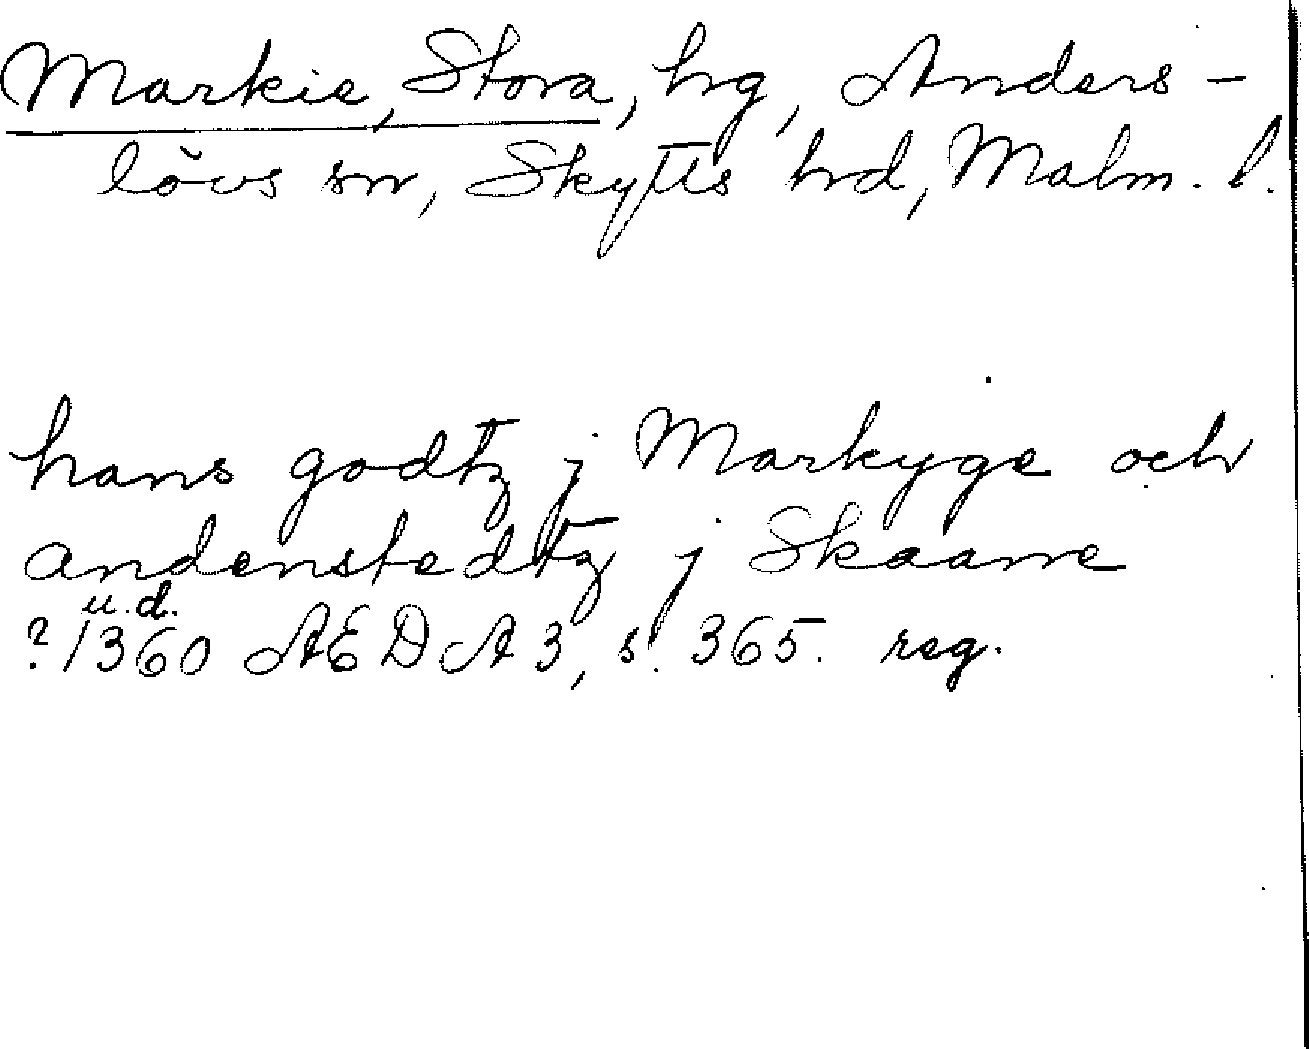 Markie, Stora, hg, Anders-
lövs sn, Skytts hrd, Malm. l.
hans godtz j Markyge och
andenstedtz j Skaane
u.d.
? 1360 AEDA 3, s. 365. reg.